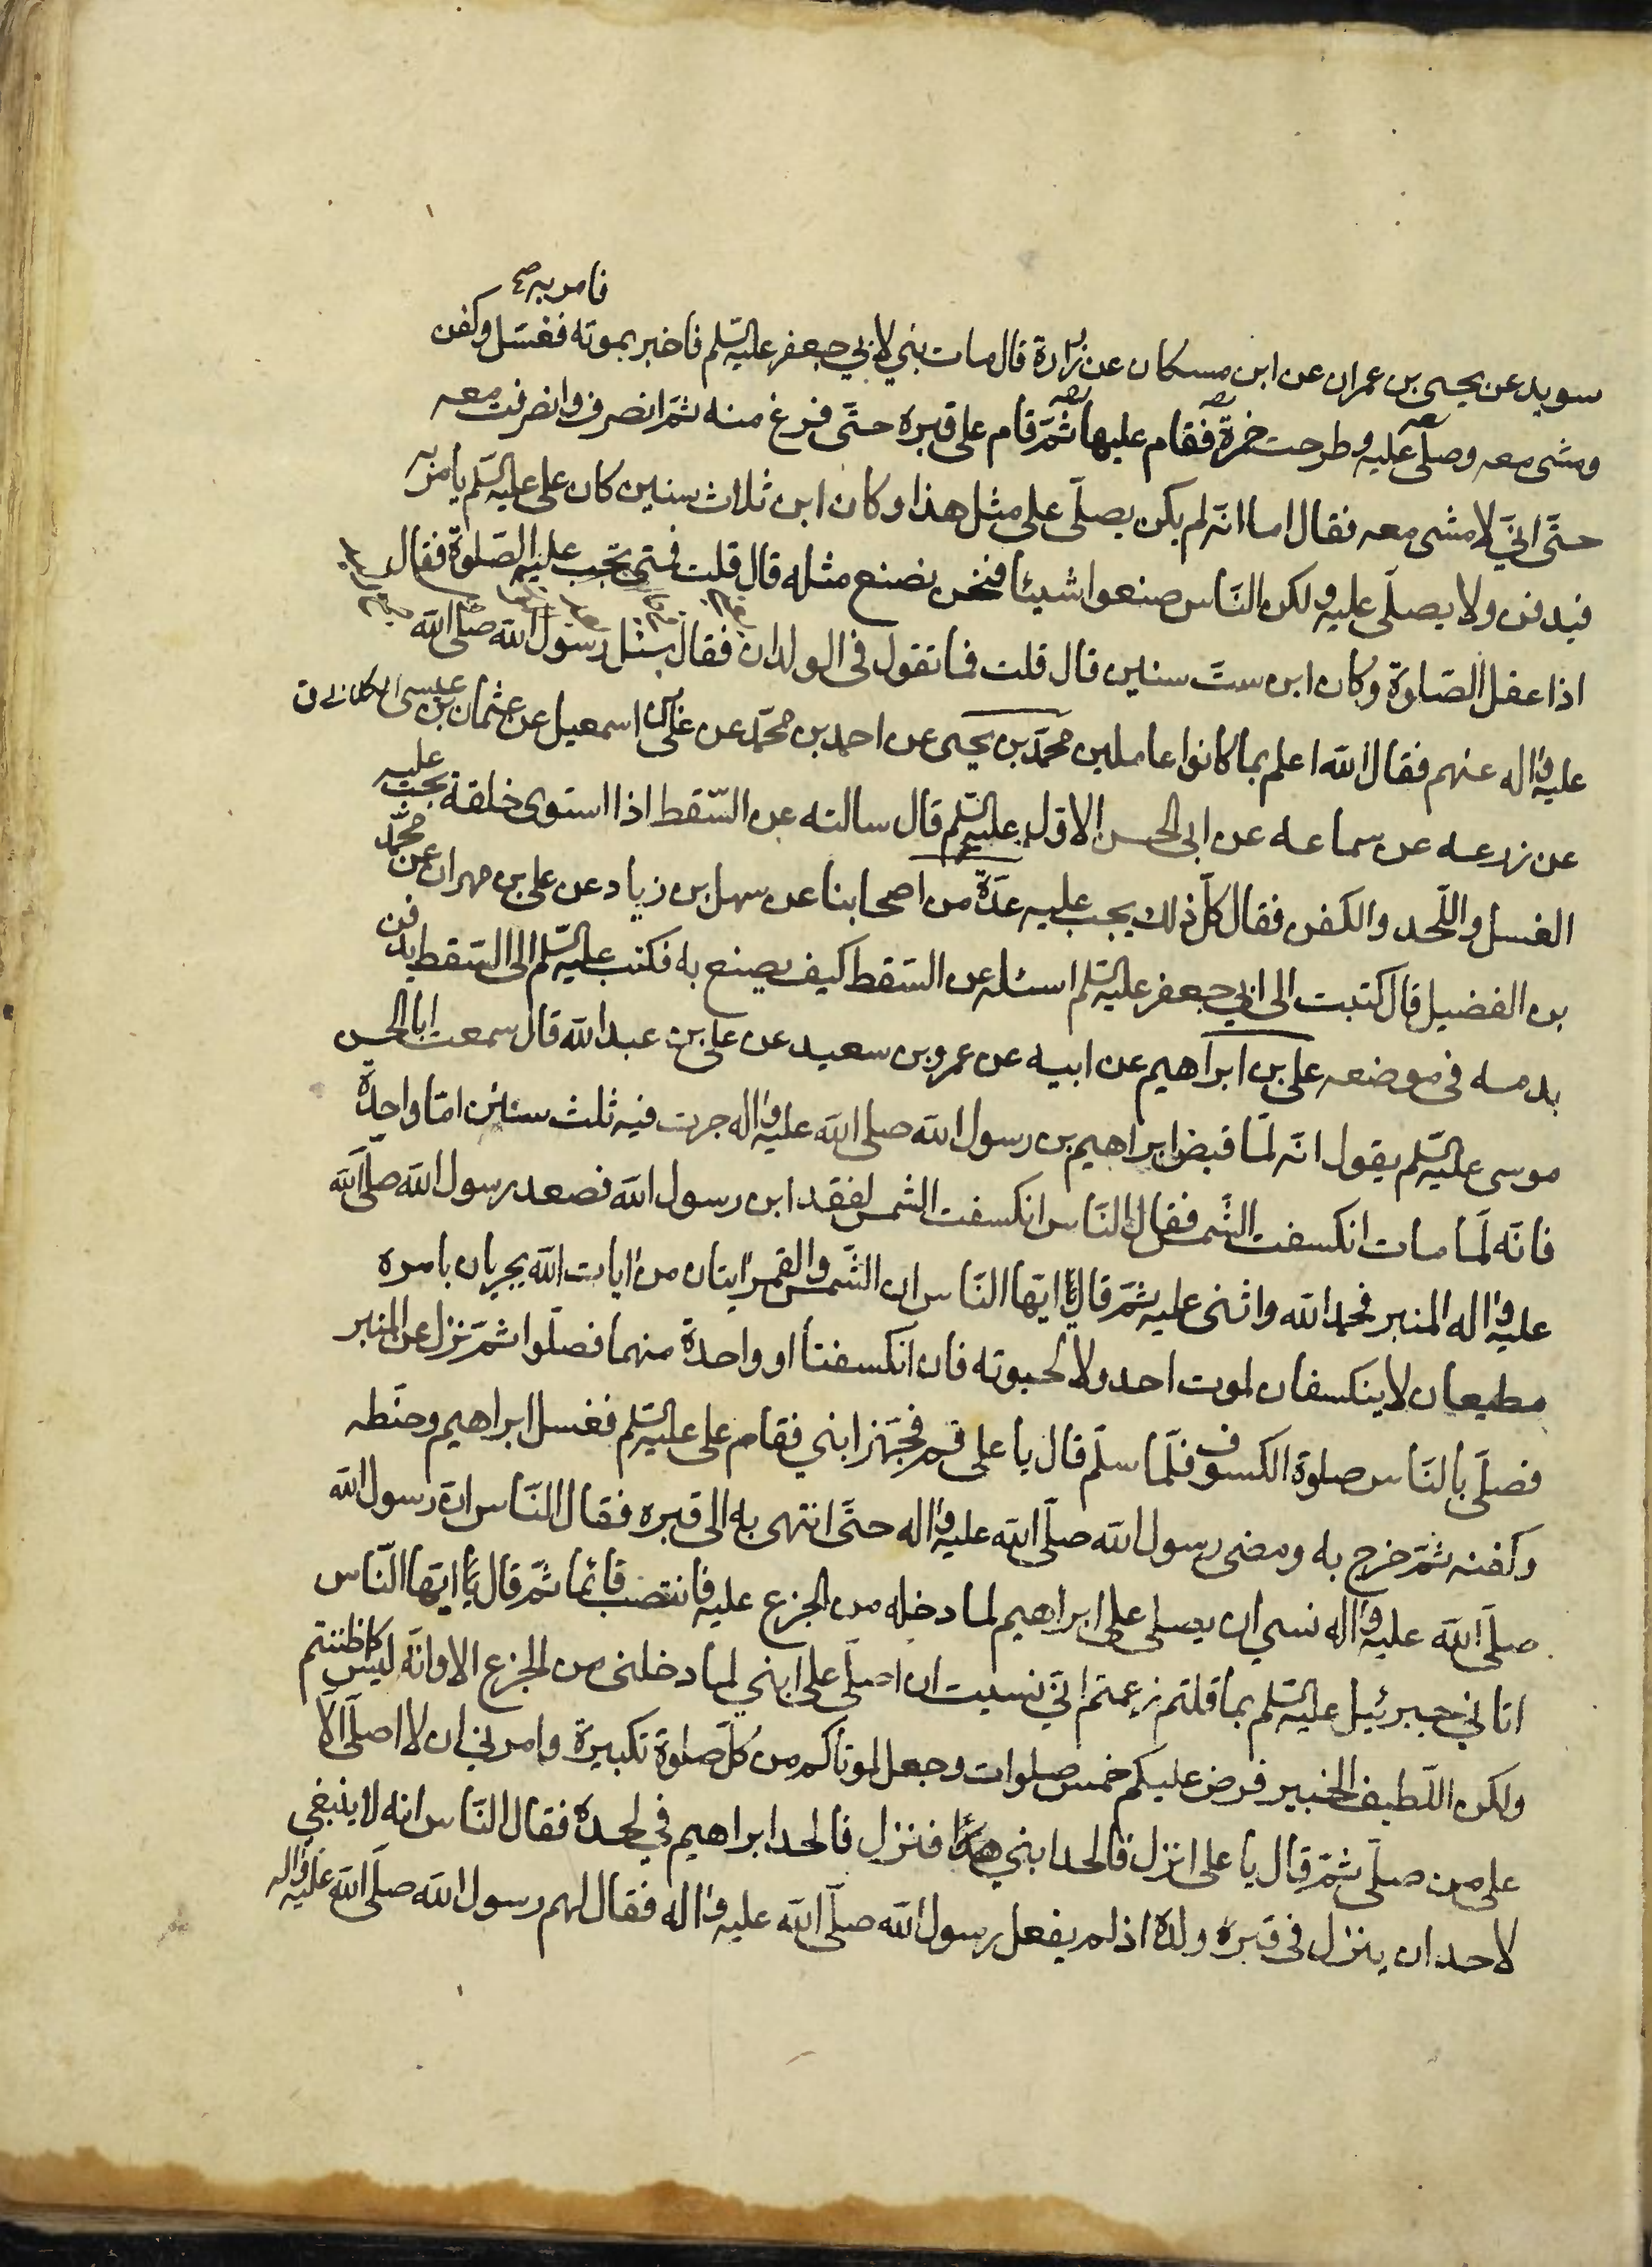 فامر به صح
سويد عن يحيى بن عمران عن ابن مسكان عن زرارة قال مات بني لابي جعفر عليه السّلم فاخبر بموته فغسّل وكفن
ومشى معه وصلّى عليه وطرحت خمرة فقام عليها ثمّ قام على قبره حتّى فرغ منه ثمّ انصرف وانصرفت معه
حتّى انّي لامشى معه فقال اما انّه لم يكن يصلّى على مثل هذا وكان ابن ثلاث سنين كان على عليه السّلم يامر به
فيدفن ولا يصلّى عليه ولكن النّاس صنعوا شيئا فنحن نصنع مثله قال قلت فمتى تجب عليه الصّلوة فقال
اذا عقل الصّلوة وكان ابن ستّ سنين قال قلت فما تقول في الولدان فقال سئل رسول الله صلّى الله
عليه واله عنهم فقال الله اعلم بما كانوا عاملين محمّد بن يحيى عن احمد بن محمّد عن علي بن اسمعيل عن عثمان بن عيسى
عن زرعه عن سماعه عن ابى الحسن الاوّل عليه السّلم قال سالته عن السّقط اذا استوى خلقة يجب عليه
الغسل واللّحد والكفن فقال كلّ ذلك يجب عليه عدّة من اصحابنا عن سهل بن زياد عن على بن مهران عن محمّد
بن الفضيل قال كتبت الى ابي جعفر عليه السّلم اسئله عن السّقط كيف يصنع به فكتب عليه السّلم الى السّقط يدفن
بدمه فى موضعه على بن ابراهيم عن ابيه عن عمرو بن سعيد عن على بن عبد الله قال سمعت ابا الحسن
موسى عليه السّلم يقول انّه لمّا قبض ابراهيم بن رسول الله صلى الله عليه واله جرت فيه ثلث سنين امّا واحدة
فانّه لمّا مات انكسفت الشّمس فقال النّاس انكسفت الشمس لفقد ابن رسول الله فصعد رسول الله صلّى الله
عليه واله المنبر فحمد الله واثنى عليه ثمّ قال يا ايّها النّاس ان الشّمس والقمر ايتان من ايات الله يجريان بامره
مطيعان لا ينكسفان لموت احد ولا لحيوته فان انكسفتا او واحدة منهما فصلّوا ثمّ نزل عن المنبر
فصلّى بالنّاس صلوة الكسوف فلمّا سلّم قال يا على قم فجهّز ابني فقام على عليه السّلم فغسل ابراهيم وحنّطه
وكفنه ثمّ خرج به ومضى رسول الله صلّى الله عليه واله حتّى انتهى به الى قبره فقال النّاس انّ رسول الله
صلّى الله عليه واله نسي ان يصلى على ابراهيم لما دخله من الجزع عليه فانتصب قائما ثمّ قال يا ايّها النّاس
اتاني جبرئيل عليه السّلم بما قلتم زعمتم انّي نسيت ان اصلّى على ابني لما دخلنى من الجزع الا وانّه ليس كما ظننتم
ولكن اللّطيف الخبير فرض عليكم خمس صلوات وجعل لموتاكم من كلّ صلوة تكبيرة وامرني ان لا اصلّى الّا
على من صلّى ثمّ قال يا على انزل فالحد ابني هذا فنزل فالحد ابراهيم في لحده فقال النّاس انه لا ينبغي
لاحد ان ينزل فى قبره ولده اذ لم يفعل رسول الله صلّى الله عليه واله فقال لهم رسول الله صلّى الله عليه واله